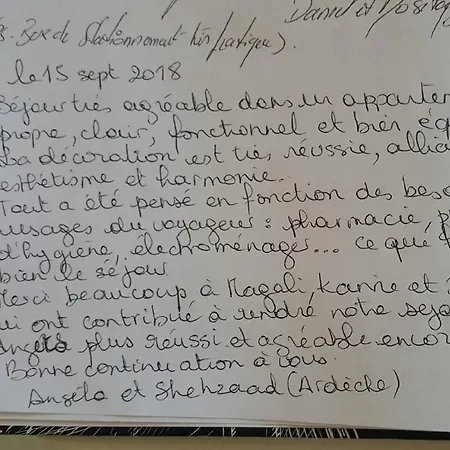 Daniel et
Box de Stationnement très pratique).
le 15 sept 2018
Séjour très agréable dans un apparte
propre, clair, fonctionnel et bien éq
La décoration est très réussie, allia
esthétisme et harmonie.
Tout a été pensé en fonction des bes
usages du voyageur : pharmacie, p
d'hygiène, électroménages... ce que
bien le séjour
Merci beaucoup à Magali, Karine et
ui ont contribué à rendre notre sejo
Angers plus réussi et agréable encor
Bonne continuation à tous.
Angéla et Shehzaad (Ardèche)